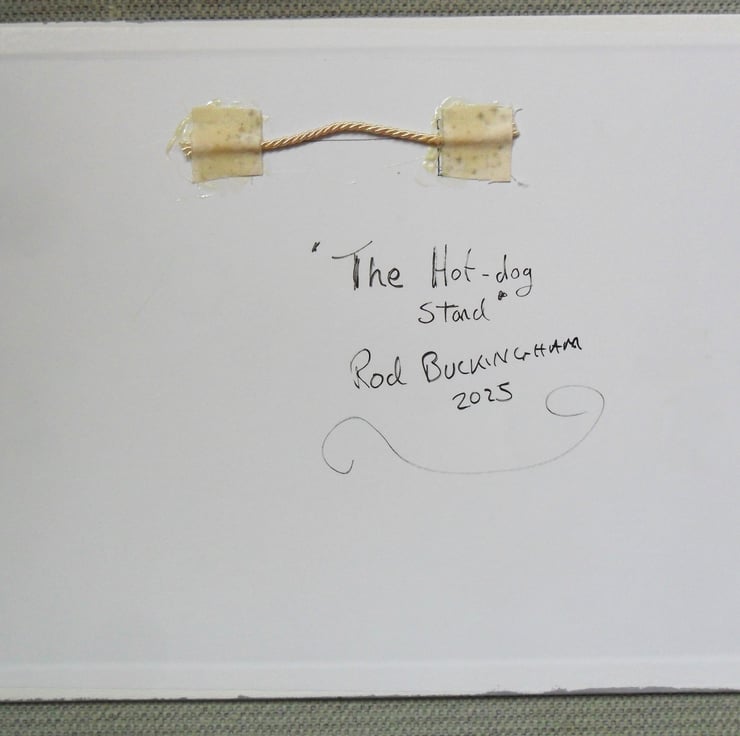 "The Hot-dog
Stand"
Rod BUCKINGHAM
2025